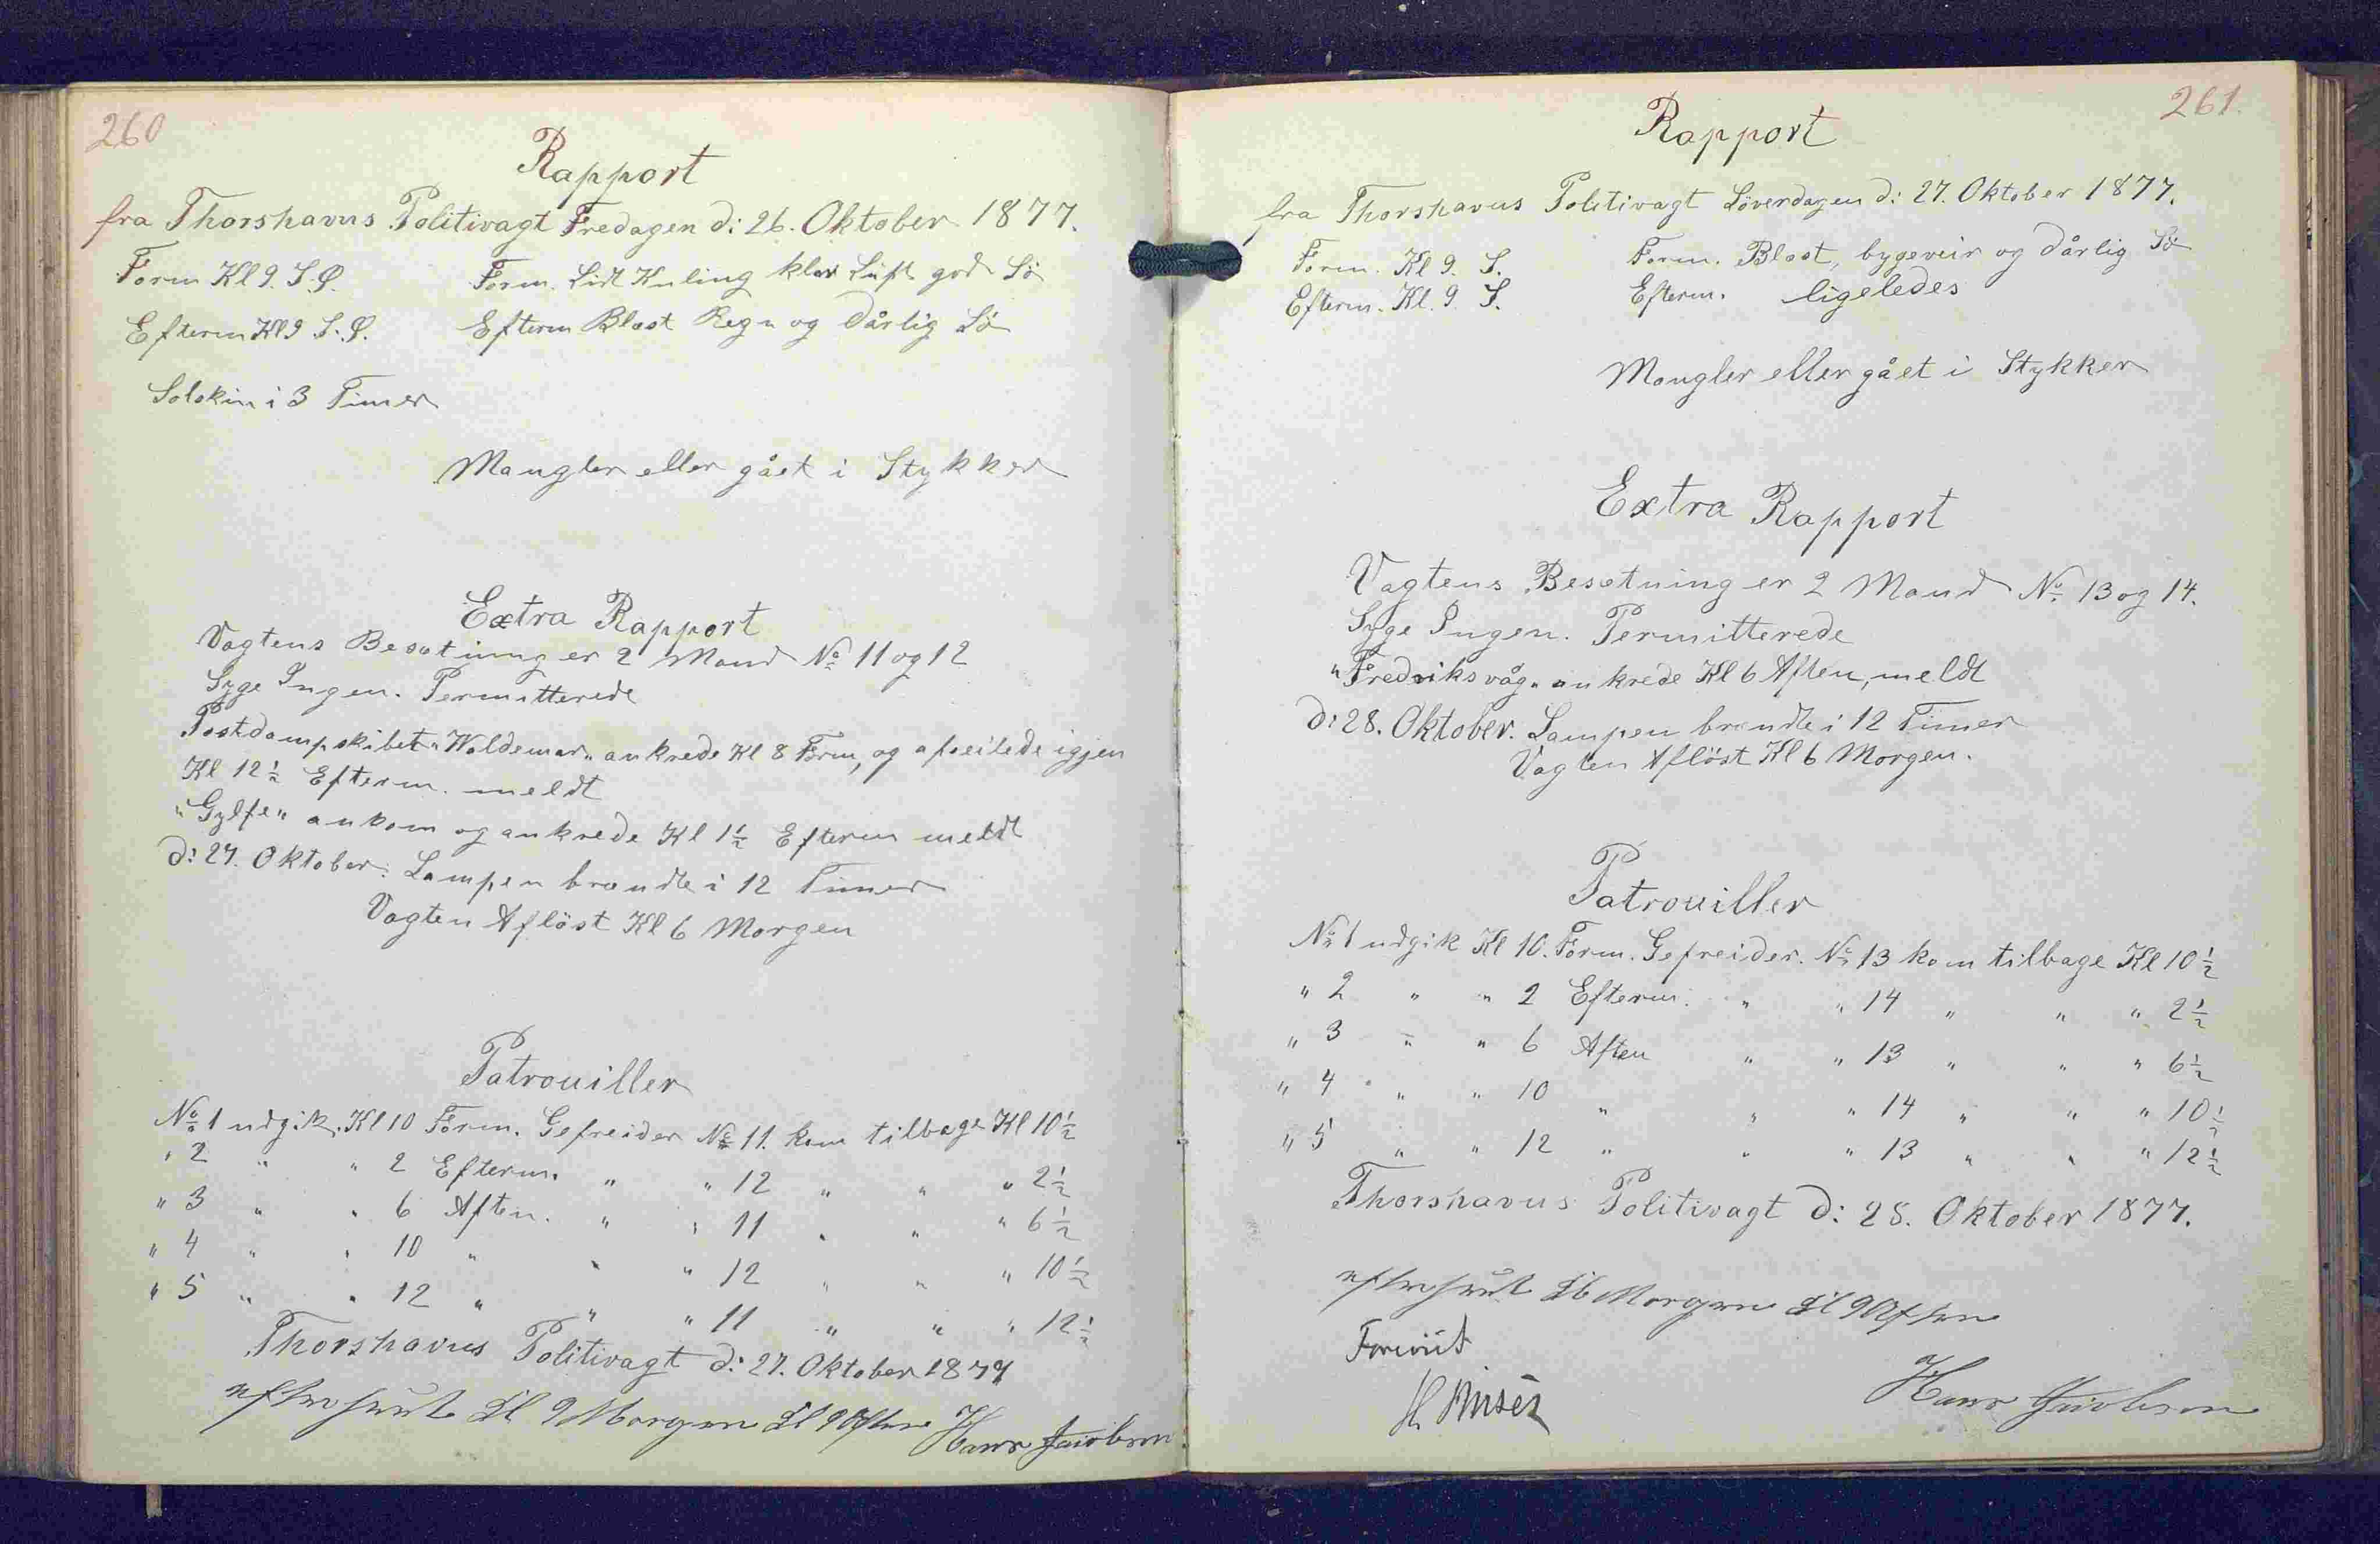 260
Rapport
fra Thorshavns Politivagt Fredagen d: 26. Oktober 1877.
Form Kl 9. S.Ø. Form. Lidt Kuling klar Luft god Sö
Efterm Kl 9 S.Ø. Efterm Blæst Regn og dårlig Sö
Solskin i 3 Timer
Mangler eller gået i Stykker
Extra Rapport
Vagtens Besætning er 2 Mand No 11 og 12
Syge Ingen. Permitterede
Postdampskibet "Waldemar" ankrede Kl 8 Form, og afseilede igjen
Kl 12½ Efterm. meldt
"Gylfe" ankom og ankrede Kl 1½ Efterm meldt
d: 27. Oktober. Lampen brændte i 12 Timer
Vagten Aflöst Kl 6 Morgen
Patrouiller
No 1 udgik Kl 10 Form. Gefreider No 11. kom tilbage Kl 10½
" 2 " " 2 Efterm. " " 12 " " " 2½
" 3 " " 6 Aften. " " 11 " " " 6½
" 4 " " 10 " " " 12 " " " 10½
" 5 " " 12 " " " 11 " " " 12½
Thorshavns Politivagt d: 27. Oktober 1877
efterseet Kl 9 Morgen Kl 9 Aften Hans Jacobsen
261.
Rapport
fra Thorshavns Politivagt Löverdagen d: 27. Oktober 1877.
Form. Kl 9. S. Form. Blæst, bygeveir og dårlig Sö
Efterm. Kl. 9. S. Efterm. ligeledes
Mangler eller gået i Stykker
Extra Rapport
Vagtens Besætning er 2 Mand No 13 og 14.
Syge Ingen. Permitterede
"Fredriksvåg" ankrede Kl 6 Aften, meldt
d: 28. Oktober. Lampen brændte i 12 Timer
Vagten Aflöst Kl 6 Morgen.
Patrouiller
No 1 udgik Kl 10. Form. Gefreider. No 13 kom tilbage Kl 10½
" 2 " " 2 Efterm. " " 14 " " " 2½
" 3 " " 6 Aften " " 13 " " " 6½
" 4 " " 10 " " " 14 " " " 10½
" 5 " " 12 " " " 13 " " " 12½
Thorshavns Politivagt d: 28. Oktober 1877.
efterseet Kl 6 Morgen Kl 9 Aften
Foreviist
Hans Jacobsen